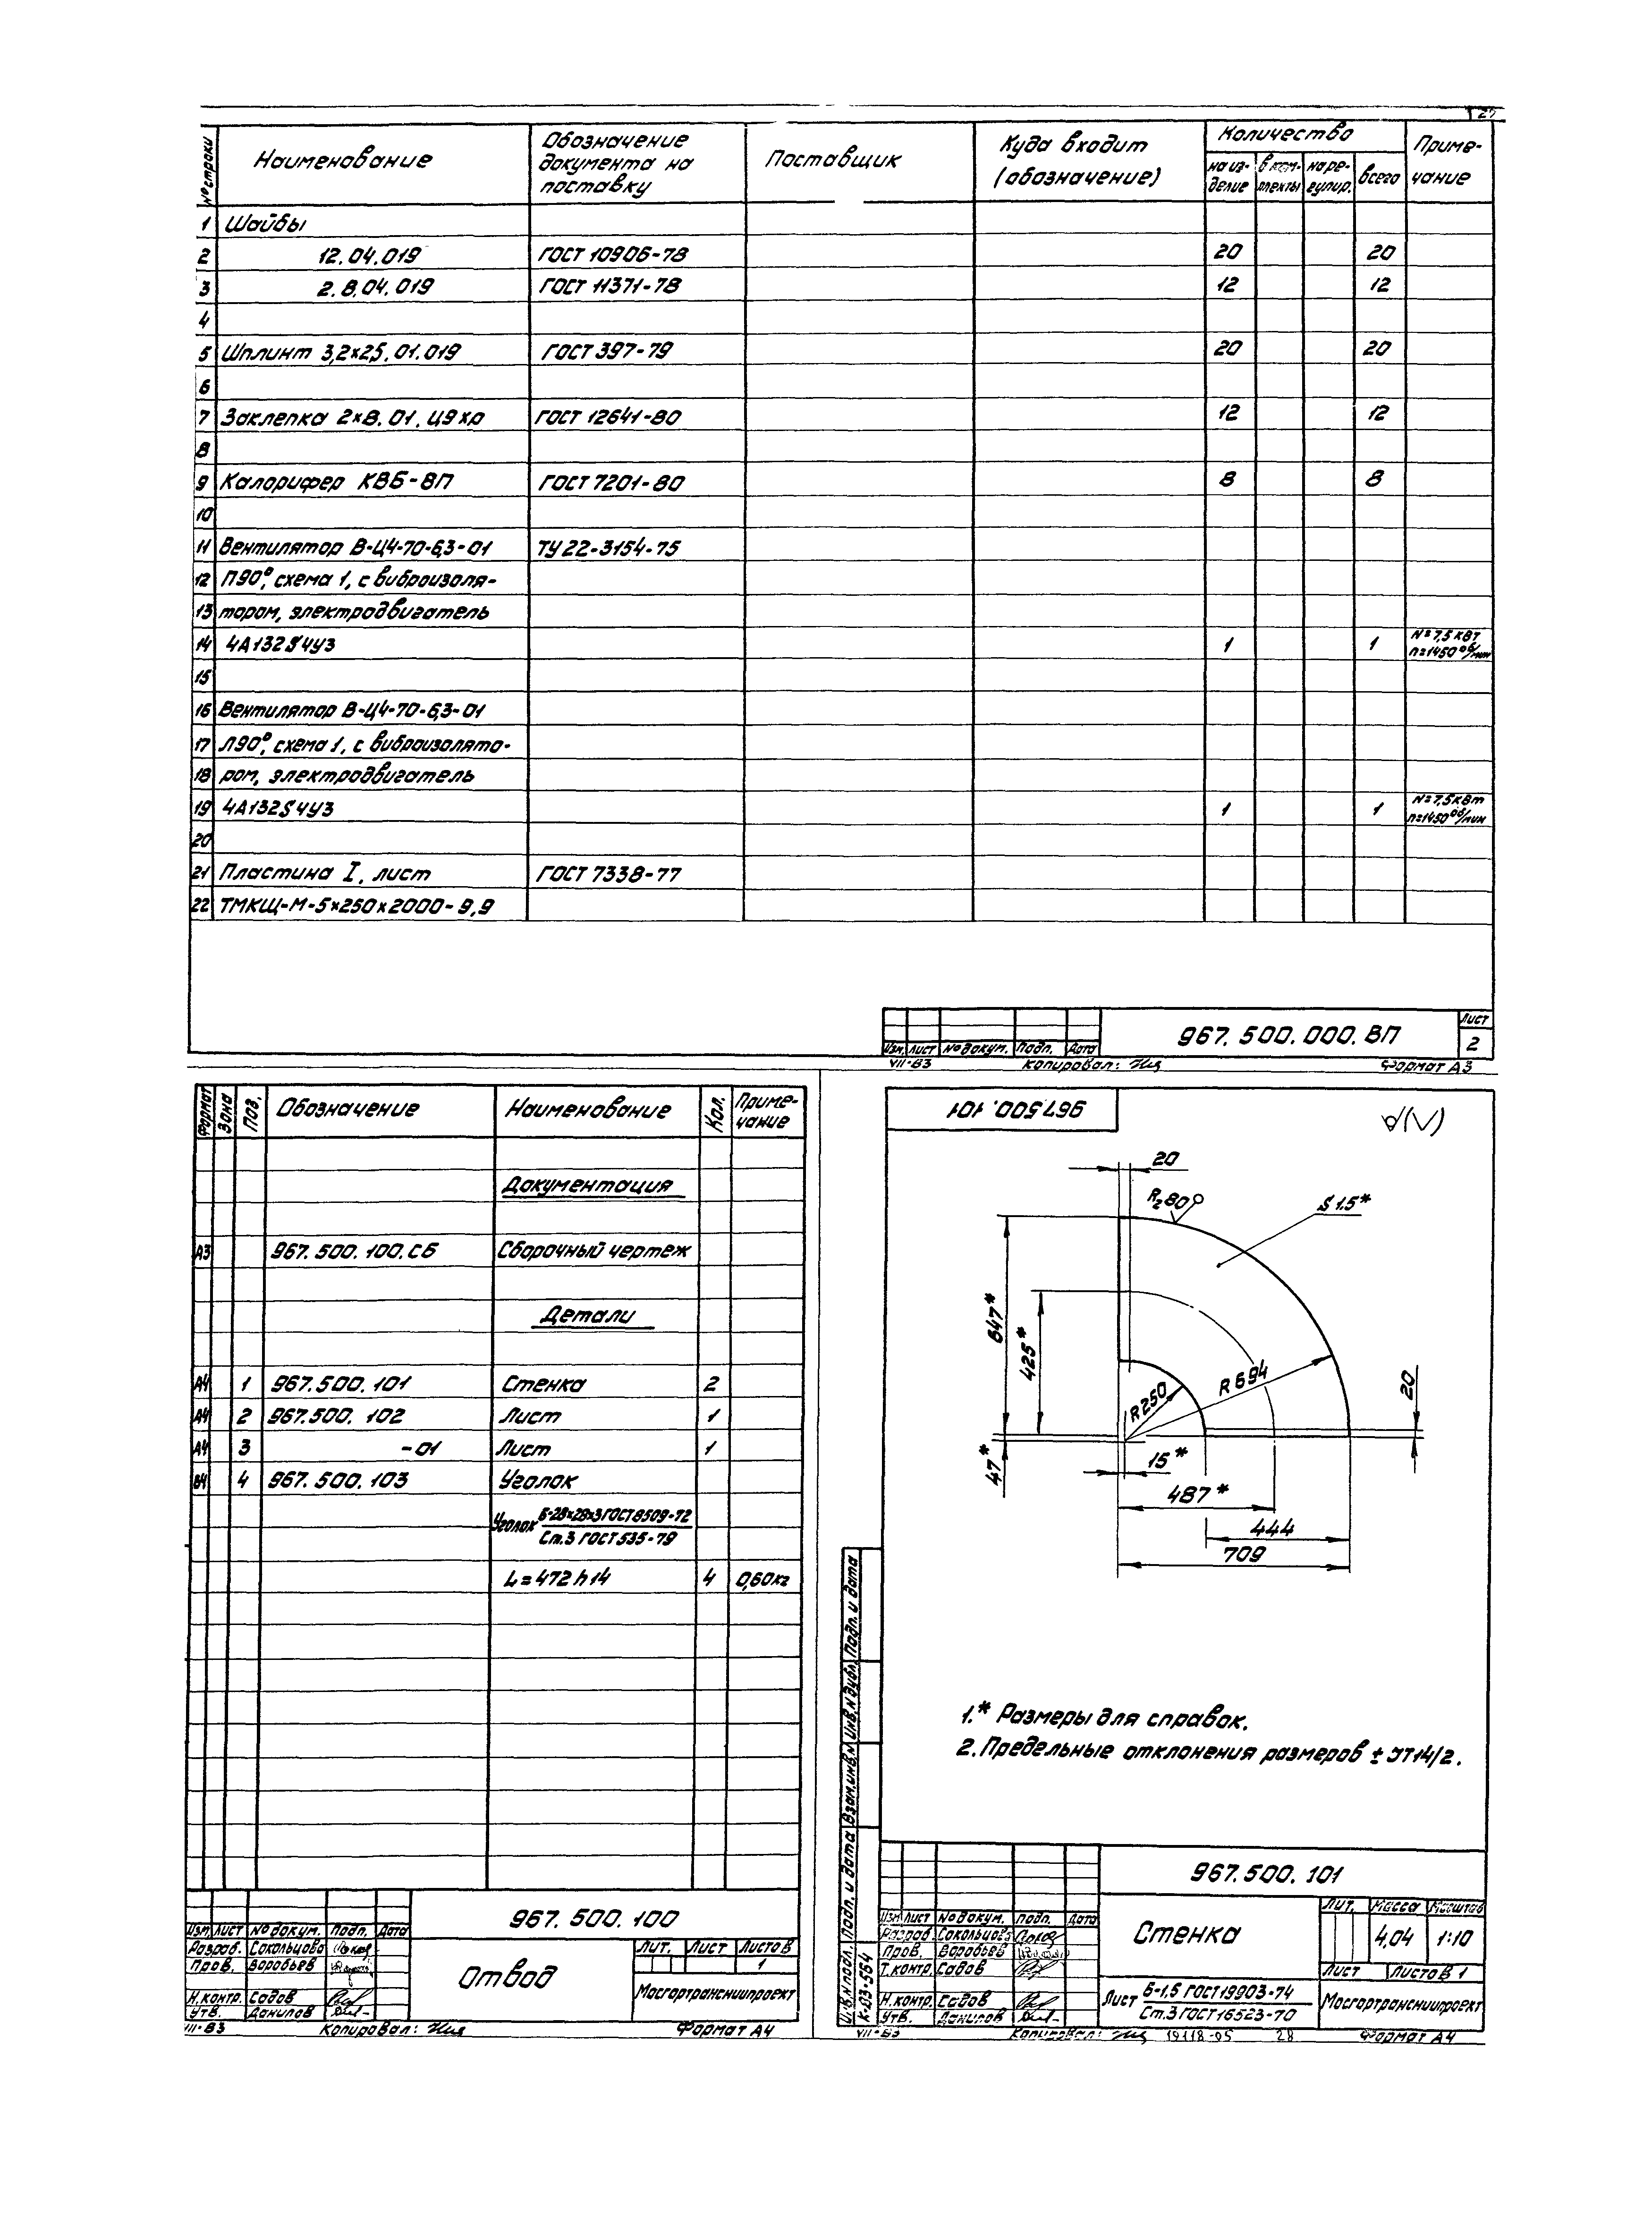 27
№ строки Наименование Обозначение документа на поставку Поставщик Куда входит (обозначение) Количество Приме-чание
на из-делие в ком-плекты на ре-гулир. всего
1 Шайбы
2 12.04.019 ГОСТ 10906-78 20 20
3 2.8.04.019 ГОСТ 11371-78 12 12
4
5 Шплинт 3,2×25.01.019 ГОСТ 397-79 20 20
6
7 Заклепка 2×8.01.Ц9хр ГОСТ 12641-80 12 12
8
9 Калорифер КВБ-8П ГОСТ 7201-80 8 8
10
11 Вентилятор В-Ц4-70-6,3-01 ТУ 22-3154-75
12 П90°, схема 1, с виброизоля-
13 тором, электродвигатель
14 4А132S4У3 1 1 N=7,5 кВт n=1450 об/мин
15
16 Вентилятор В-Ц4-70-6,3-01
17 Л90°, схема 1, с виброизолято-
18 ром, электродвигатель
19 4А132S4У3 1 1 N=7,5 кВт n=1450 об/мин
20
21 Пластина I, лист ГОСТ 7338-77
22 ТМКЩ-М-5×250×2000-9,9
967.500.000.ВП
Лист
2
Изм. Лист № докум. Подп. Дата
VII-83 Копировал: Формат А3
Формат Зона Поз. Обозначение Наименование Кол. Приме-чание
Документация
А3 967.500.100.СБ Сборочный чертеж
Детали
А4 1 967.500.101 Стенка 2
А4 2 967.500.102 Лист 1
А4 3 -01 Лист 1
БЧ 4 967.500.103 Уголок
Уголок Б-28×28×3 ГОСТ 8509-72
Ст.3 ГОСТ 535-79
L=472 h14 4 0,60кг
967.500.100
Изм. Лист № докум. Подп. Дата
Разраб. Сокольцова
Пров. Воробьев
Н.контр. Садов
Утв. Данилов
Отвод
Лит. Лист Листов
1
Мосгортрансниипроект
VII-83 Копировал: Формат А4
967.500.101
(√)
20
Rz80
S 1.5*
647*
425*
R250
R694
20
47*
15*
487*
444
709
1.* Размеры для справок.
2. Предельные отклонения размеров ± JT14/2.
Подп. и дата
Инв. № дубл.
Взам. инв. №
Подп. и дата
Инв. № подл.
К-03-564
967.500.101
Изм. Лист № докум. Подп. Дата
Разраб. Сокольцова
Пров. Воробьев
Т.контр. Садов
Н.контр. Садов
Утв. Данилов
Стенка
Лит. Масса Масштаб
4,04 1:10
Лист Листов 1
Лист Б-1,5 ГОСТ 19903-74
Ст.3 ГОСТ 16523-70
Мосгортрансниипроект
VII-83 Копировал: 19118-05 28 Формат А4